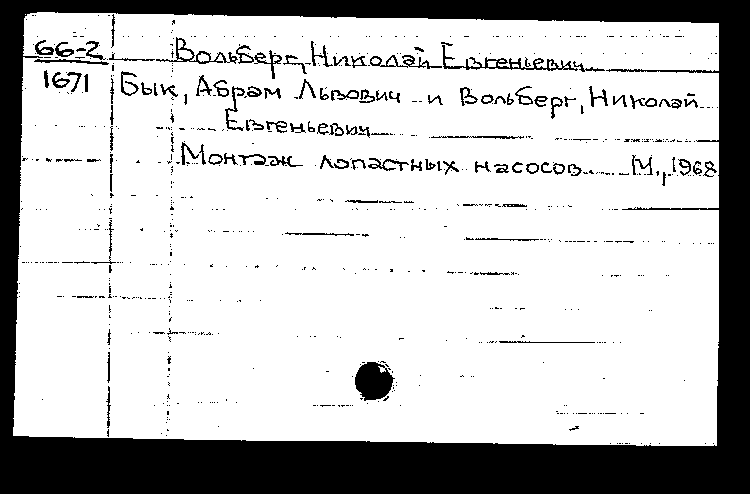 66-2 Вольберг, Николай Евгеньевич
1671 Бык, Абрам Львович и Вольберг, Николай
Евгеньевич
Монтаж лопастных насосов. М., 1968